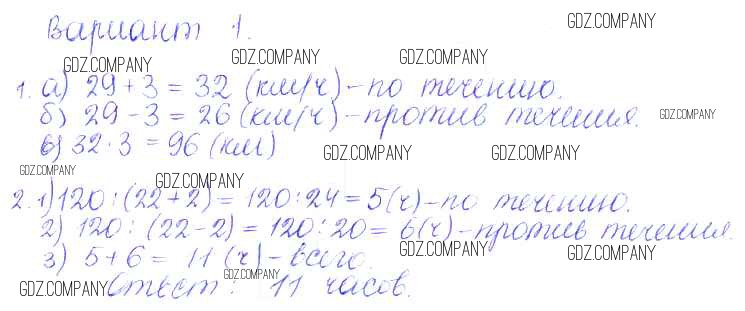 Вариант 1.
1. а) 29 + 3 = 32 (км/ч) – по течению.
б) 29 – 3 = 26 (км/ч) – против течения.
в) 32 · 3 = 96 (км)
2. 1) 120 : (22 + 2) = 120 : 24 = 5 (ч) – по течению.
2) 120 : (22 – 2) = 120 : 20 = 6 (ч) – против течения.
3) 5 + 6 = 11 (ч) – всего.
Ответ: 11 часов.
GDZ.COMPANY
GDZ.COMPANY
GDZ.COMPANY
GDZ.COMPANY
GDZ.COMPANY
GDZ.COMPANY
GDZ.COMPANY
GDZ.COMPANY
GDZ.COMPANY
GDZ.COMPANY
GDZ.COMPANY
GDZ.COMPANY
GDZ.COMPANY